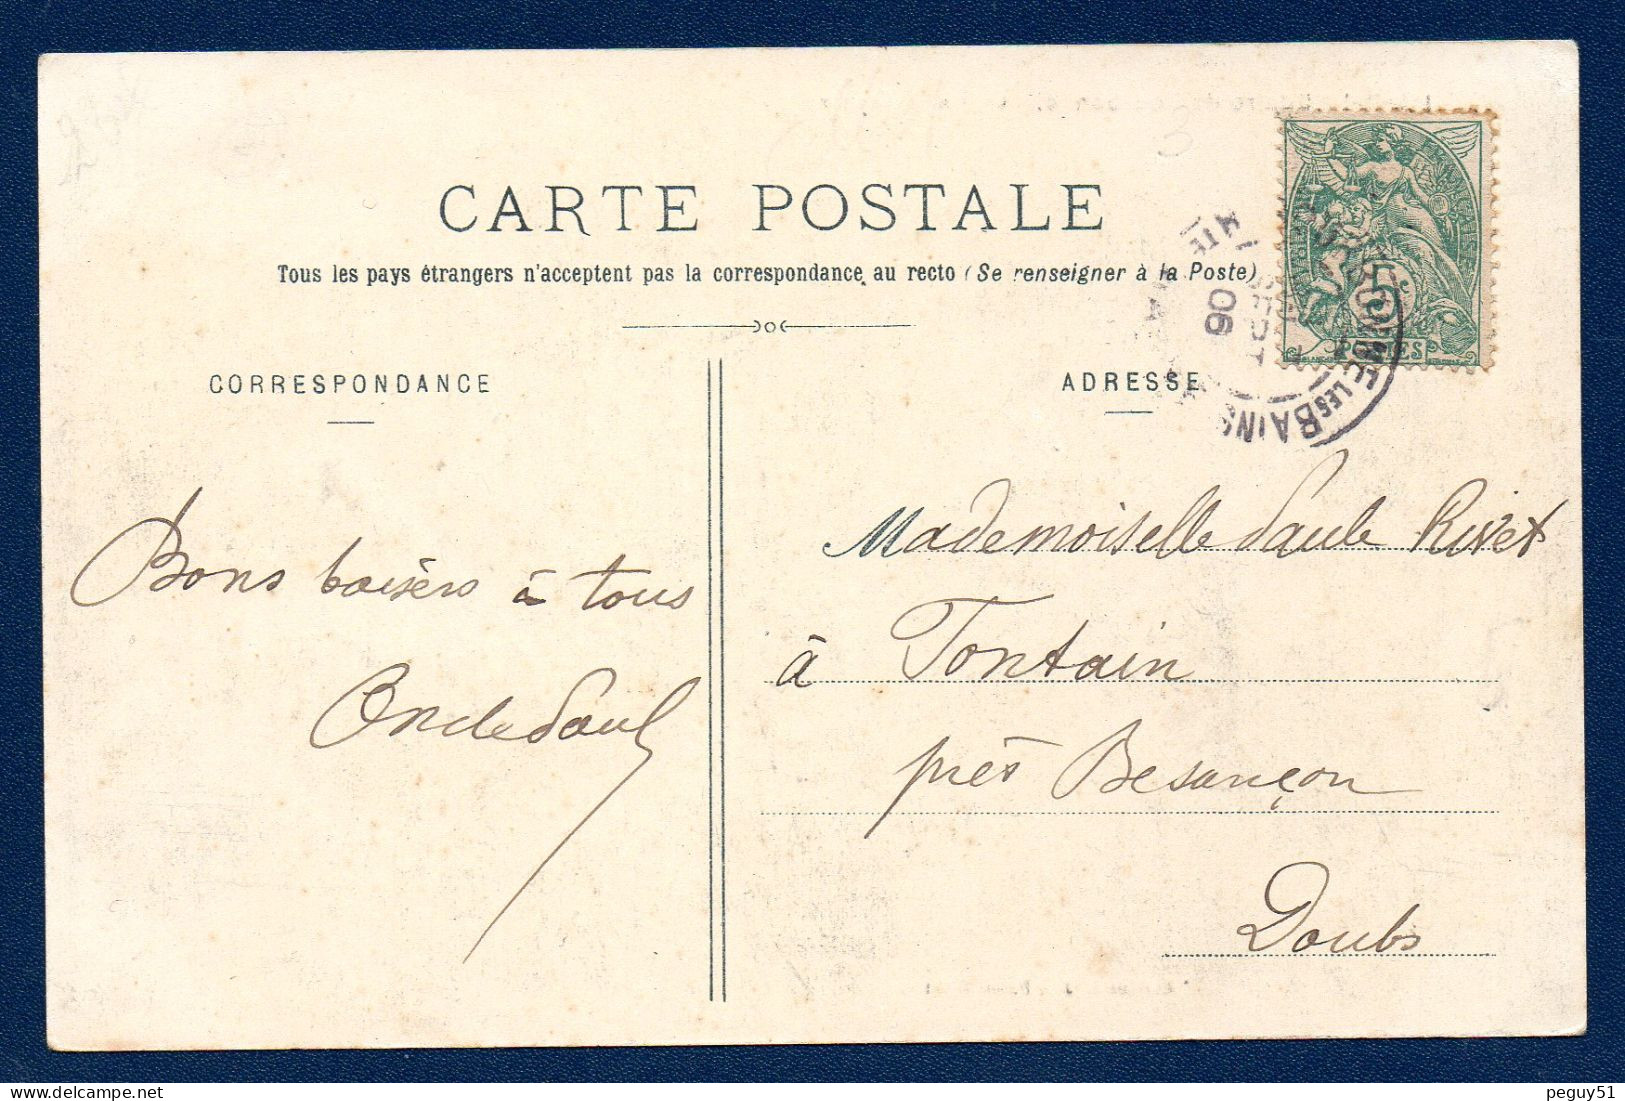 CARTE POSTALE
Tous les pays étrangers n'acceptent pas la correspondance au recto (Se renseigner à la Poste)
CORRESPONDANCE
ADRESSE
5c
POSTES
LES BAINS
HTE
06
Bons baisers à tous
Mademoiselle Paule Rivet
à Fontain
près Besançon
Doubs
peguy51